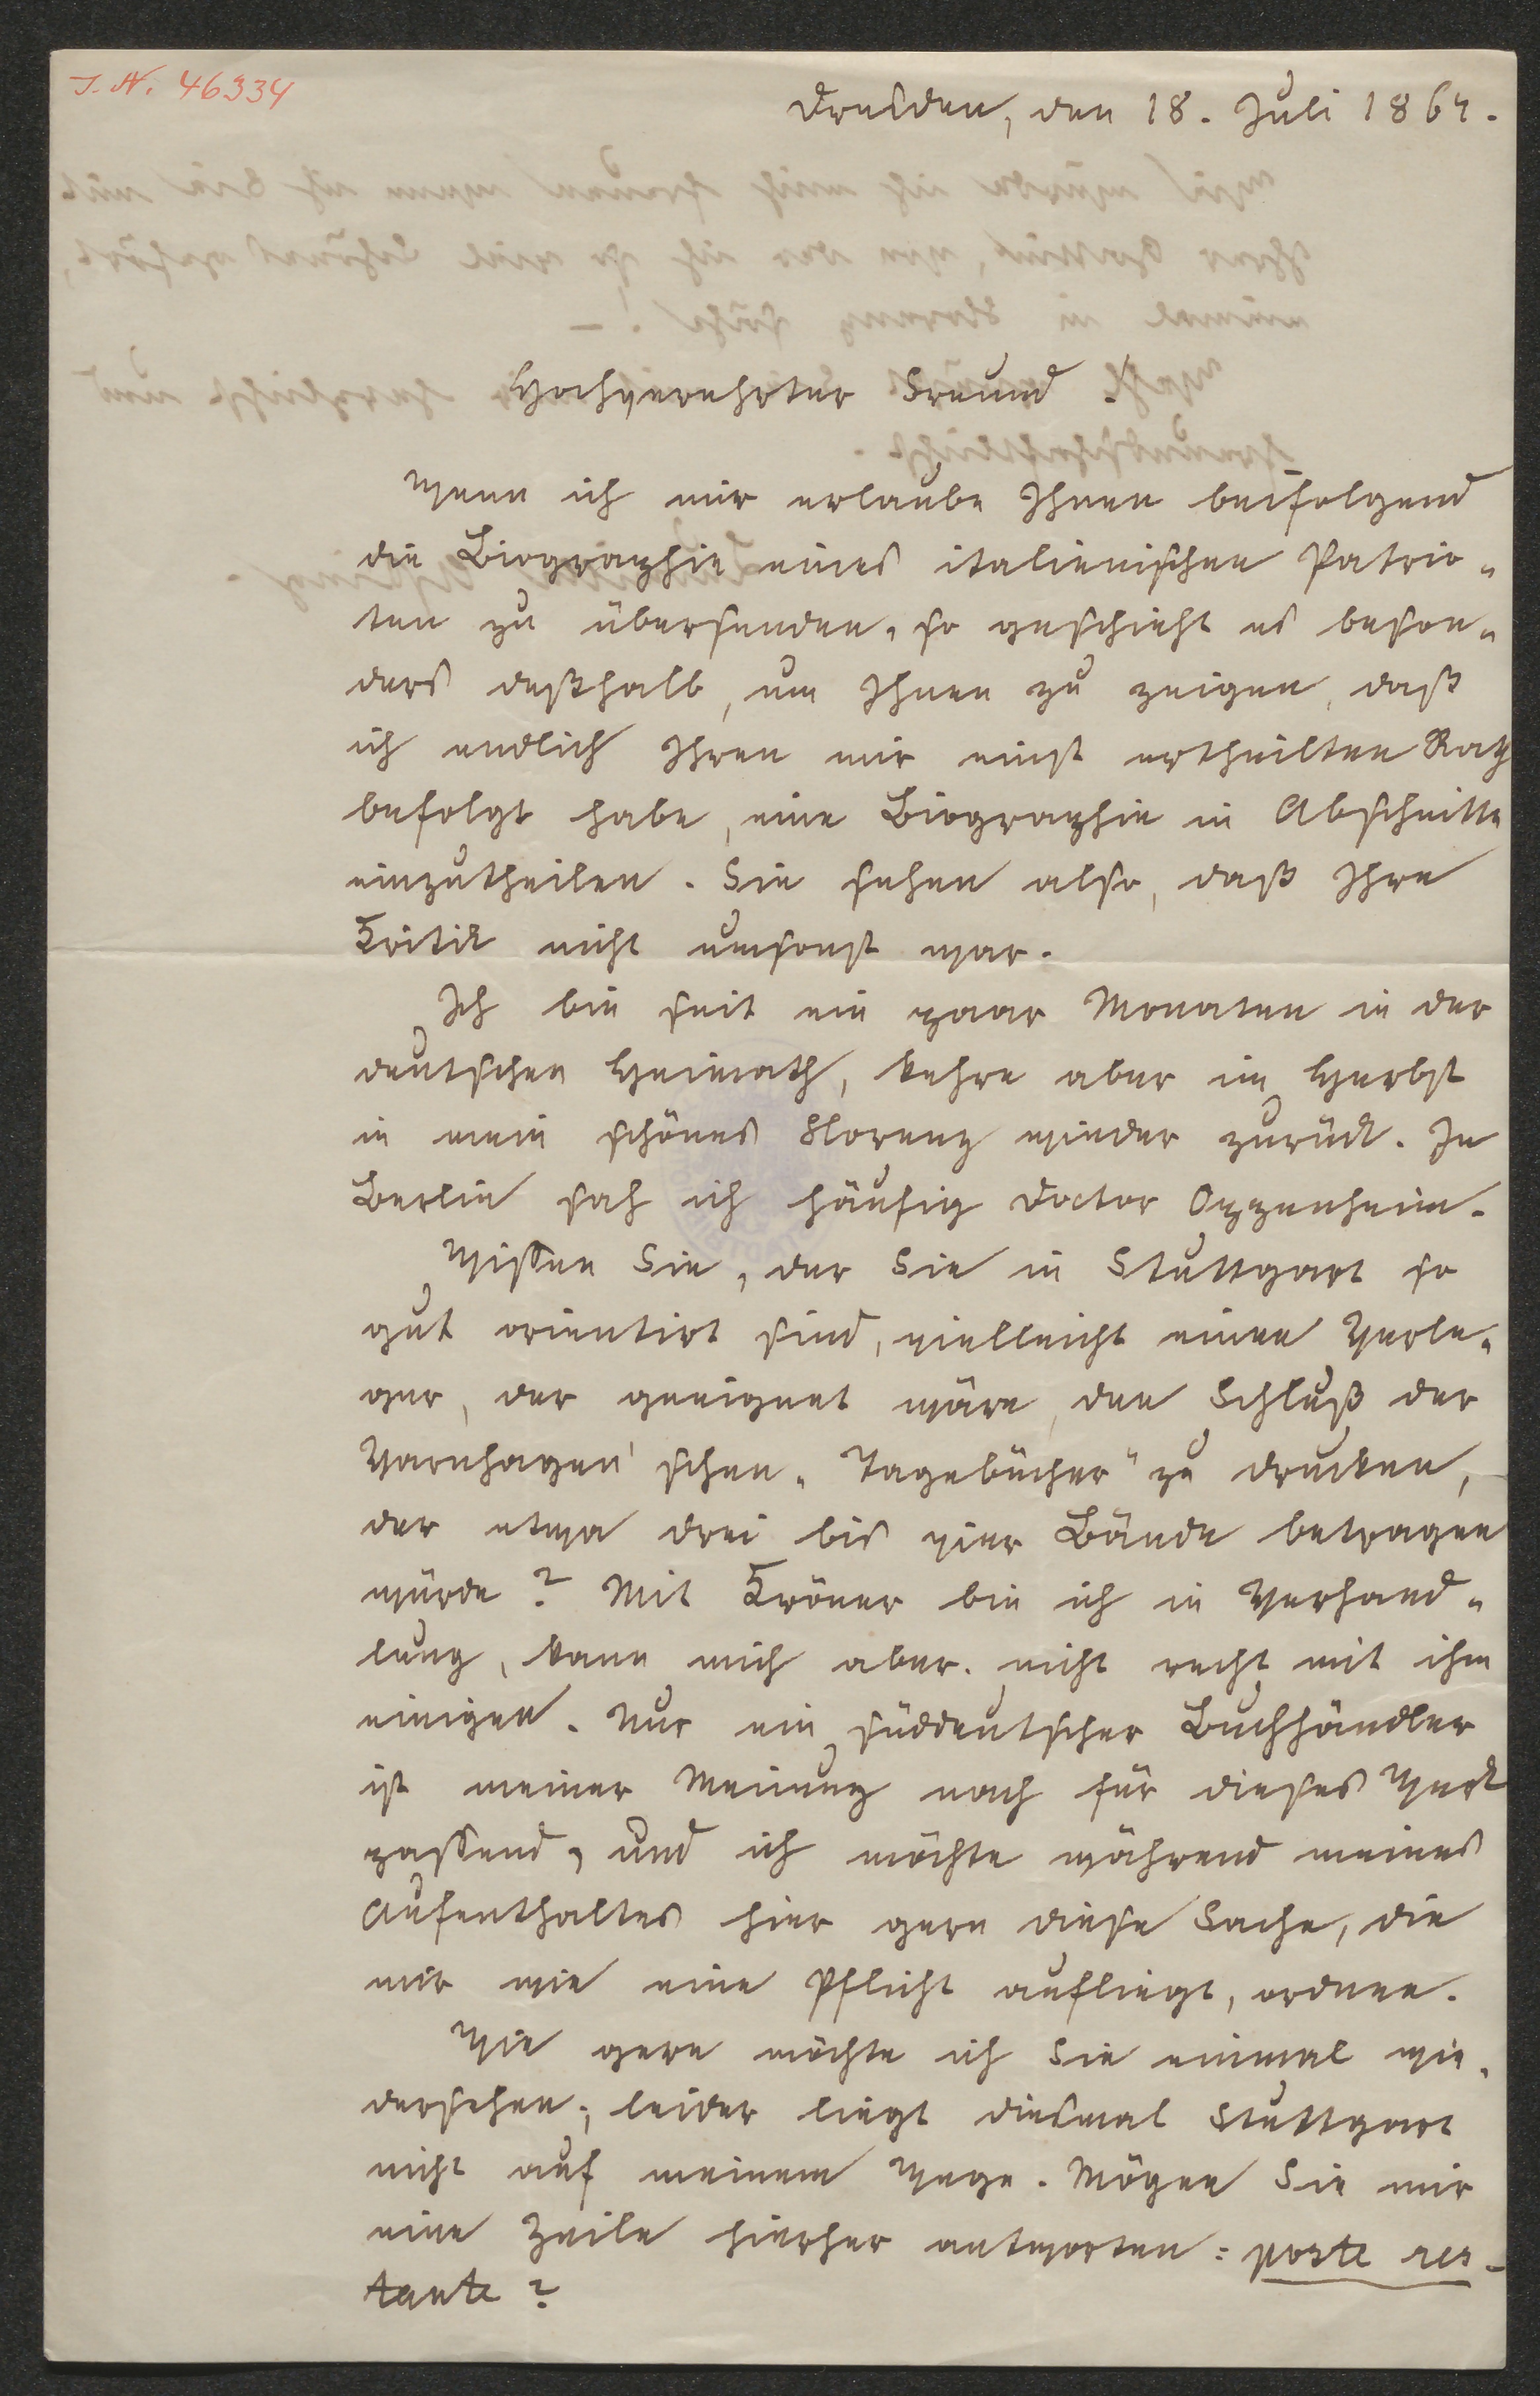 J. N. 46334
Dresden, den 18. Juli 1864.
Hochverehrter Freund!
Wenn ich mir erlaube Ihnen beifolgend
die Biographie eines italienischen Patrio-
ten zu übersenden, so geschieht es beson-
ders deßhalb, um Ihnen zu zeigen, daß
ich endlich Ihren mir einst ertheilten Rath
befolgt habe, eine Biographie in Abschnitte
einzutheilen. Sie sehen also, daß Ihre
Kritik nicht umsonst war.
Ich bin seit ein paar Monaten in der
deutschen Heimath, kehre aber im Herbst
in mein schönes Florenz wieder zurück. In
Berlin sah ich häufig Doctor Oppenheim.
Wissen Sie, der Sie in Stuttgart so
gut orientirt sind, vielleicht einen Verle-
ger, der geeignet wäre, den Schluß der
Varnhagen'schen „Tagebücher" zu drucken,
der etwa drei bis vier Bände betragen
würde? Mit Kröner bin ich in Verhand-
lung, kann mich aber nicht recht mit ihm
einigen. Nur ein süddeutscher Buchhändler
ist meiner Meinung nach für dieses Werk
passend, und ich möchte während meines
Aufenthaltes hier gern diese Sache, die
mir wie eine Pflicht aufliegt, ordnen.
Wie gern möchte ich Sie einmal wie-
dersehen; leider liegt diesmal Stuttgart
nicht auf meinem Wege. Mögen Sie mir
eine Zeile hierher antworten: poste res-
tante?